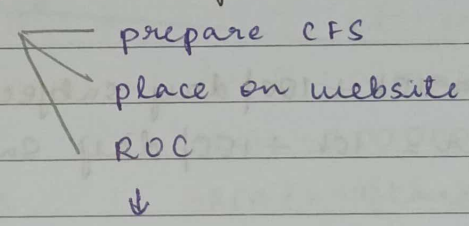 prepare CFS
place on website
ROC
↓